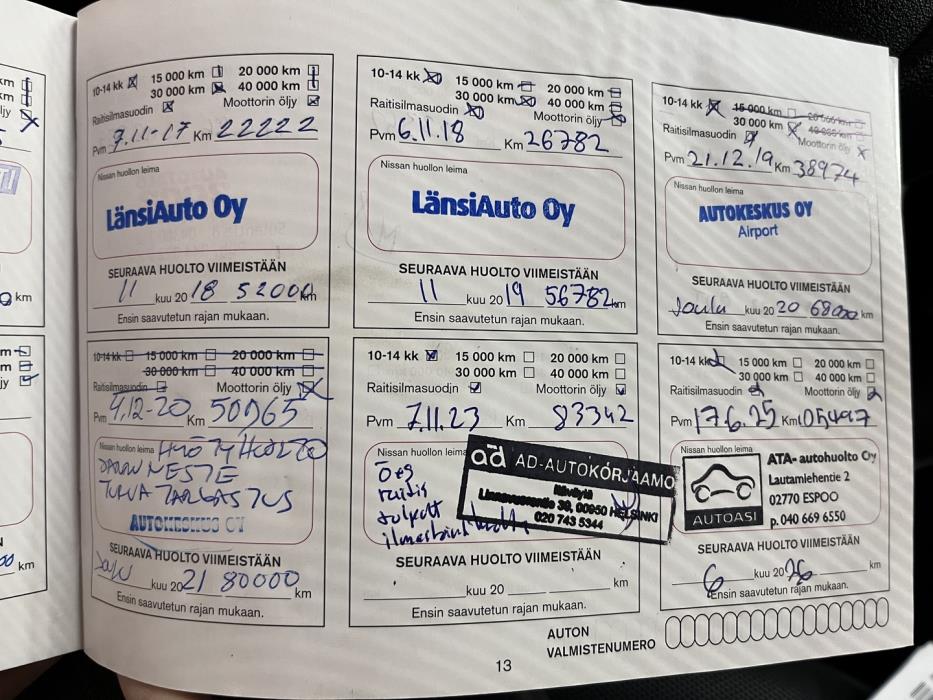 10-14 kk 15 000 km 20 000 km
30 000 km 40 000 km
Raitisilmasuodin Moottorin öljy
Pvm 7.11-17 Km 22222
Nissan huollon leima
LänsiAuto Oy
SEURAAVA HUOLTO VIIMEISTÄÄN
11 kuu 20 18 52000 km
Ensin saavutetun rajan mukaan.
10-14 kk 15 000 km 20 000 km
30 000 km 40 000 km
Raitisilmasuodin Moottorin öljy
Pvm 6.11.18 Km 26782
Nissan huollon leima
LänsiAuto Oy
SEURAAVA HUOLTO VIIMEISTÄÄN
11 kuu 20 19 56782 km
Ensin saavutetun rajan mukaan.
10-14 kk 15 000 km 20 000 km
30 000 km 40 000 km
Raitisilmasuodin Moottorin öljy
Pvm 21.12.19 Km 38974
Nissan huollon leima
AUTOKESKUS OY
Airport
SEURAAVA HUOLTO VIIMEISTÄÄN
Joulu kuu 20 20 68000 km
Ensin saavutetun rajan mukaan.
10-14 kk 15 000 km 20 000 km
30 000 km 40 000 km
Raitisilmasuodin Moottorin öljy
Pvm 4.12-20 Km 50965
Nissan huollon leima
AUTOKESKUS OY
SEURAAVA HUOLTO VIIMEISTÄÄN
kuu 20 21 80000 km
Ensin saavutetun rajan mukaan.
10-14 kk 15 000 km 20 000 km
30 000 km 40 000 km
Raitisilmasuodin Moottorin öljy
Pvm 7.11.23 Km 83342
Nissan huollon leima
ad AD-AUTOKORJAAMO
00950 HELSINKI
020 743 5344
raitis
SEURAAVA HUOLTO VIIMEISTÄÄN
kuu 20 km
Ensin saavutetun rajan mukaan.
10-14 kk 15 000 km 20 000 km
30 000 km 40 000 km
Raitisilmasuodin Moottorin öljy
Pvm 17.6.25 Km 105497
Nissan huollon leima
AUTOASI
ATA- autohuolto Oy
Lautamiehentie 2
02770 ESPOO
p. 040 669 6550
SEURAAVA HUOLTO VIIMEISTÄÄN
6 kuu 20 26 km
Ensin saavutetun rajan mukaan.
AUTON
VALMISTENUMERO
13